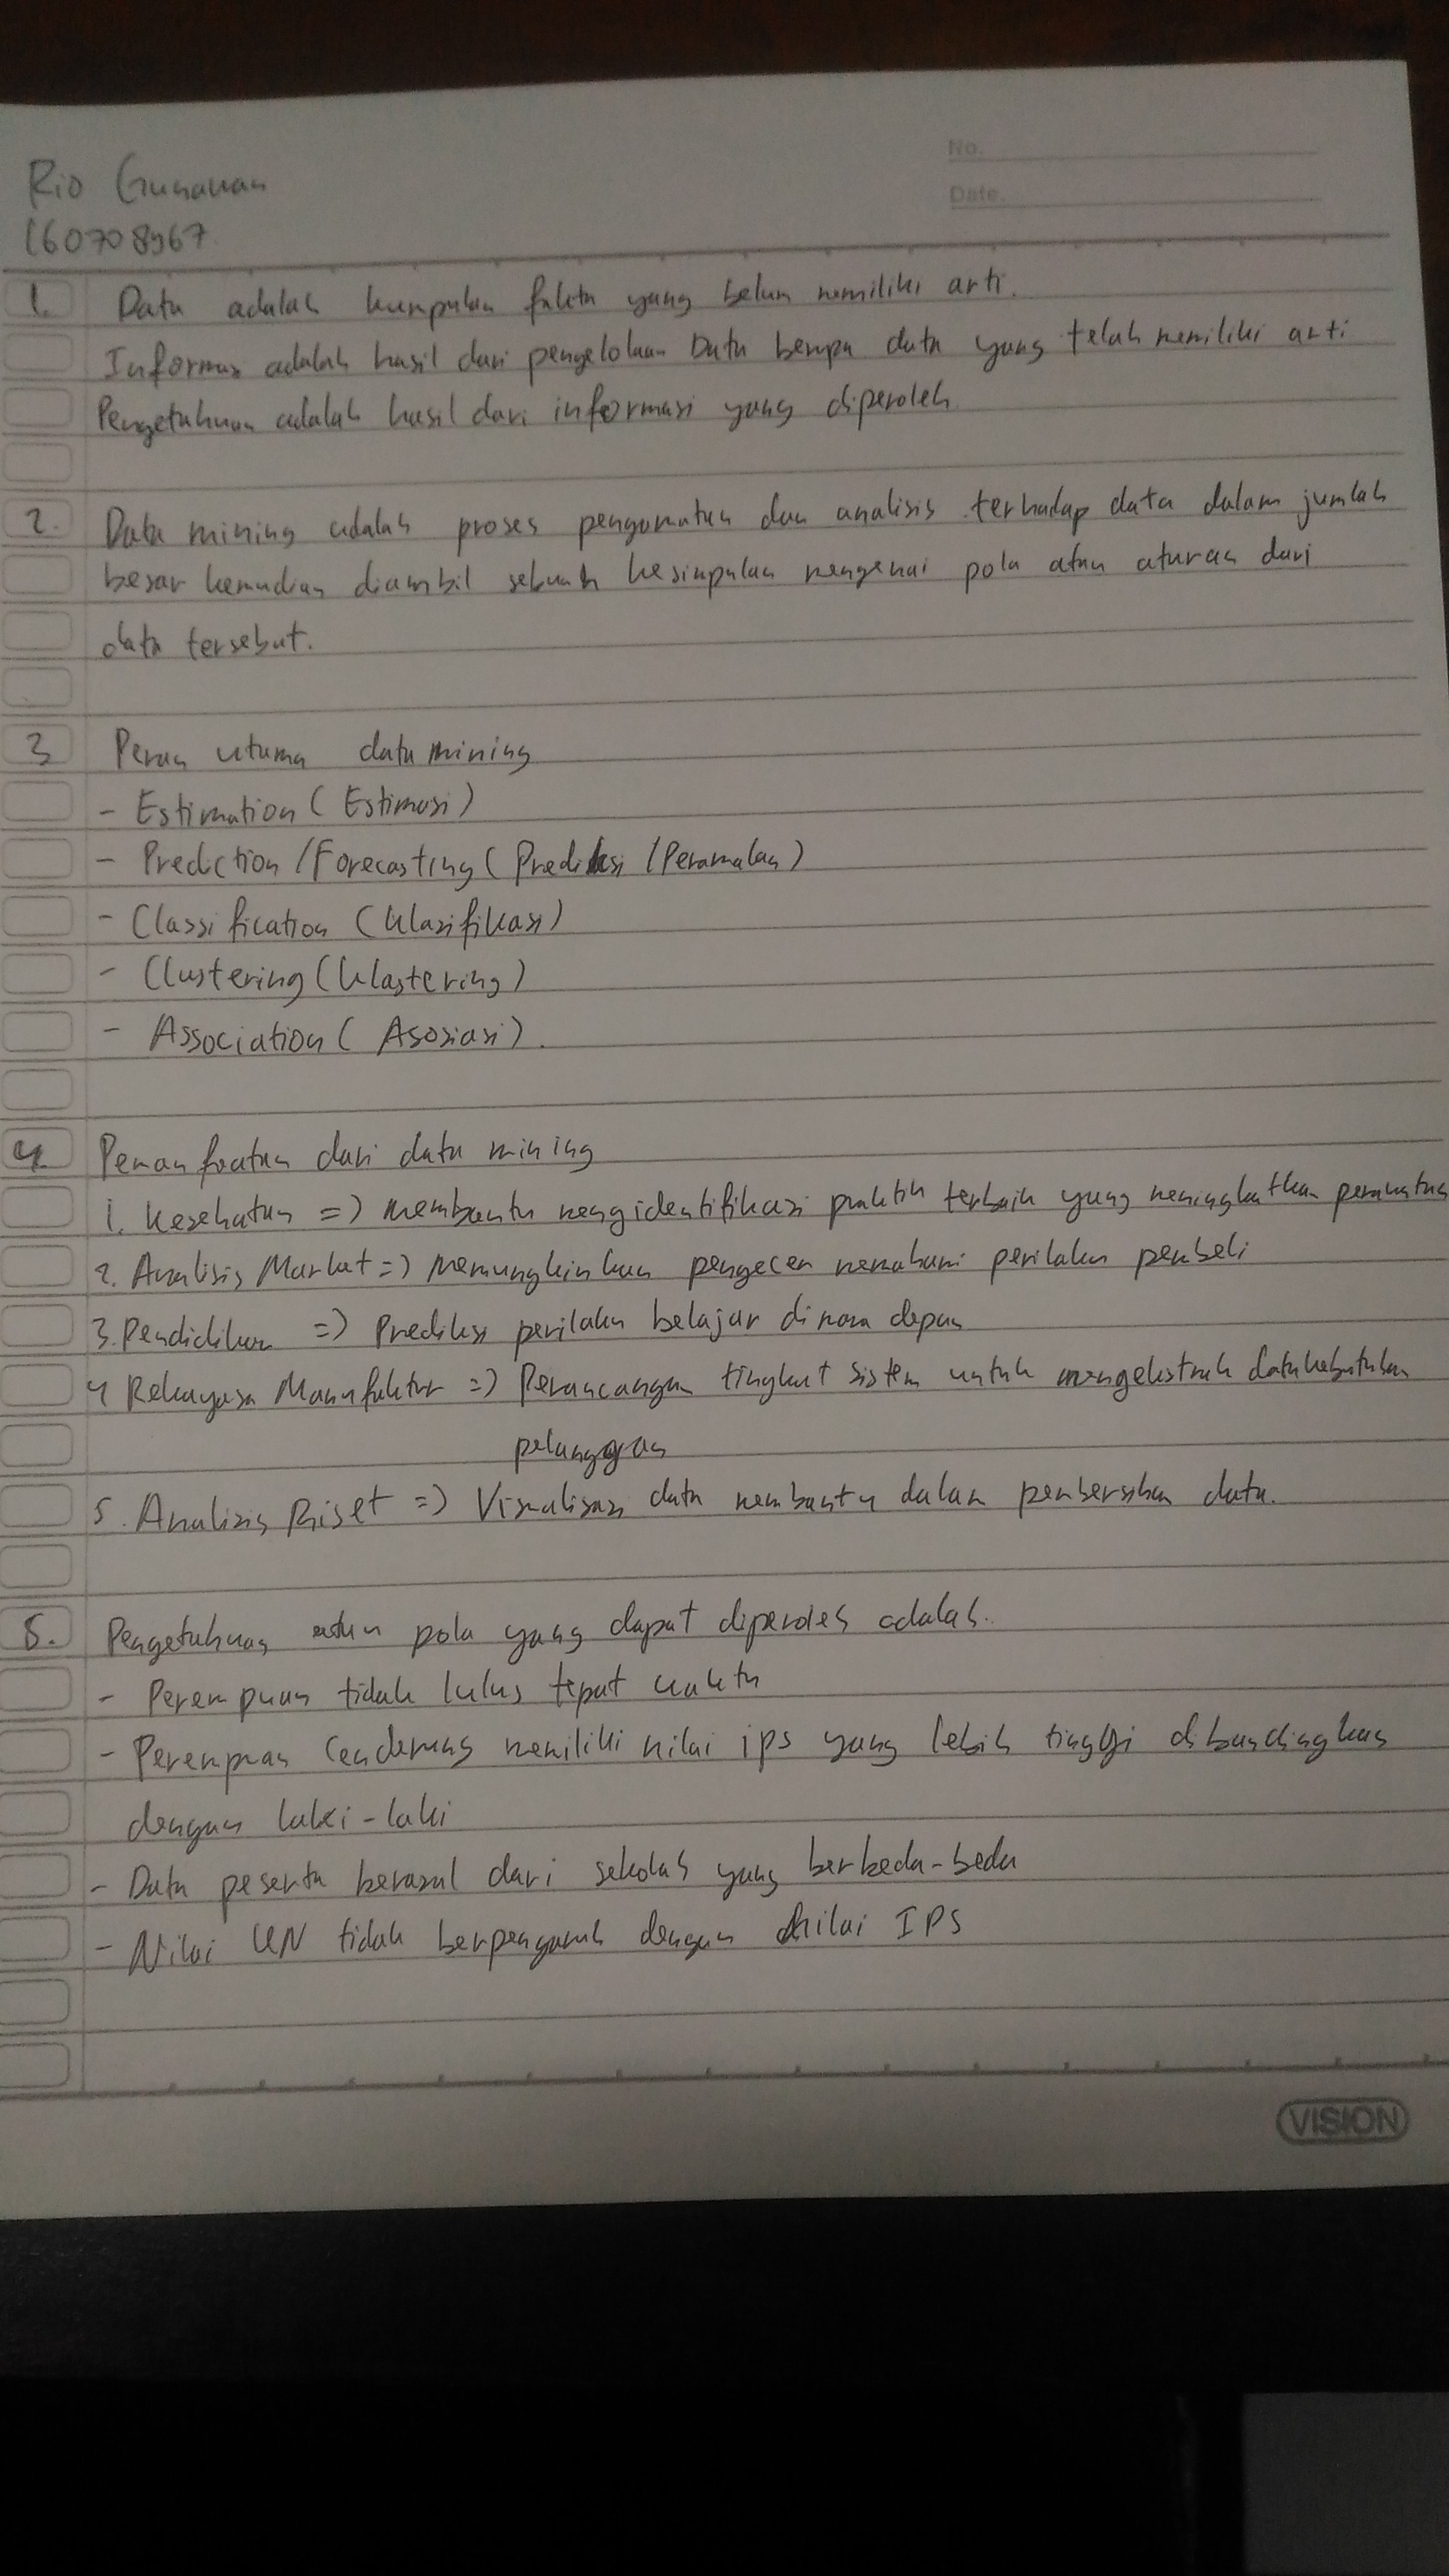 Rio Gunawan
160708967
No.
Date.
1. Data adalah kumpulan fakta yang belum memiliki arti.
Informasi adalah hasil dari pengelolaan Data berupa data yang telah memiliki arti
Pengetahuan adalah hasil dari informasi yang diperoleh.
2. Data mining adalah proses pengamatan dan analisis terhadap data dalam jumlah
besar kemudian diambil sebuah kesimpulan mengenai pola atau aturan dari
data tersebut.
3 Peran utama data mining
- Estimation (Estimasi)
- Prediction / Forecasting (Prediksi / Peramalan)
- Classification (Klasifikasi)
- Clustering (Klastering)
- Association (Asosiasi).
4. Pemanfaatan dari data mining
1. Kesehatan => Membantu mengidentifikasi praktik terbaik yang meningkatkan perawatan
2. Analisis Market => Memungkinkan pengecer memahami perilaku pembeli
3. Pendidikan => Prediksi perilaku belajar dimasa depan
4 Rekayasa Manufaktur => Perancangan tingkat sistem untuk mengekstrak data kebutuhan
pelanggan
5. Analisis Riset => Visualisasi data membantu dalam pembersihan data.
5. Pengetahuan atau pola yang dapat diperoleh adalah..
- Perempuan tidak lulus tepat waktu
- Perempuan cenderung memiliki nilai ips yang lebih tinggi dibandingkan
dengan laki-laki
- Data peserta berasal dari sekolah yang berbeda-beda
- Nilai UN tidak berpengaruh dengan nilai IPS
VISION